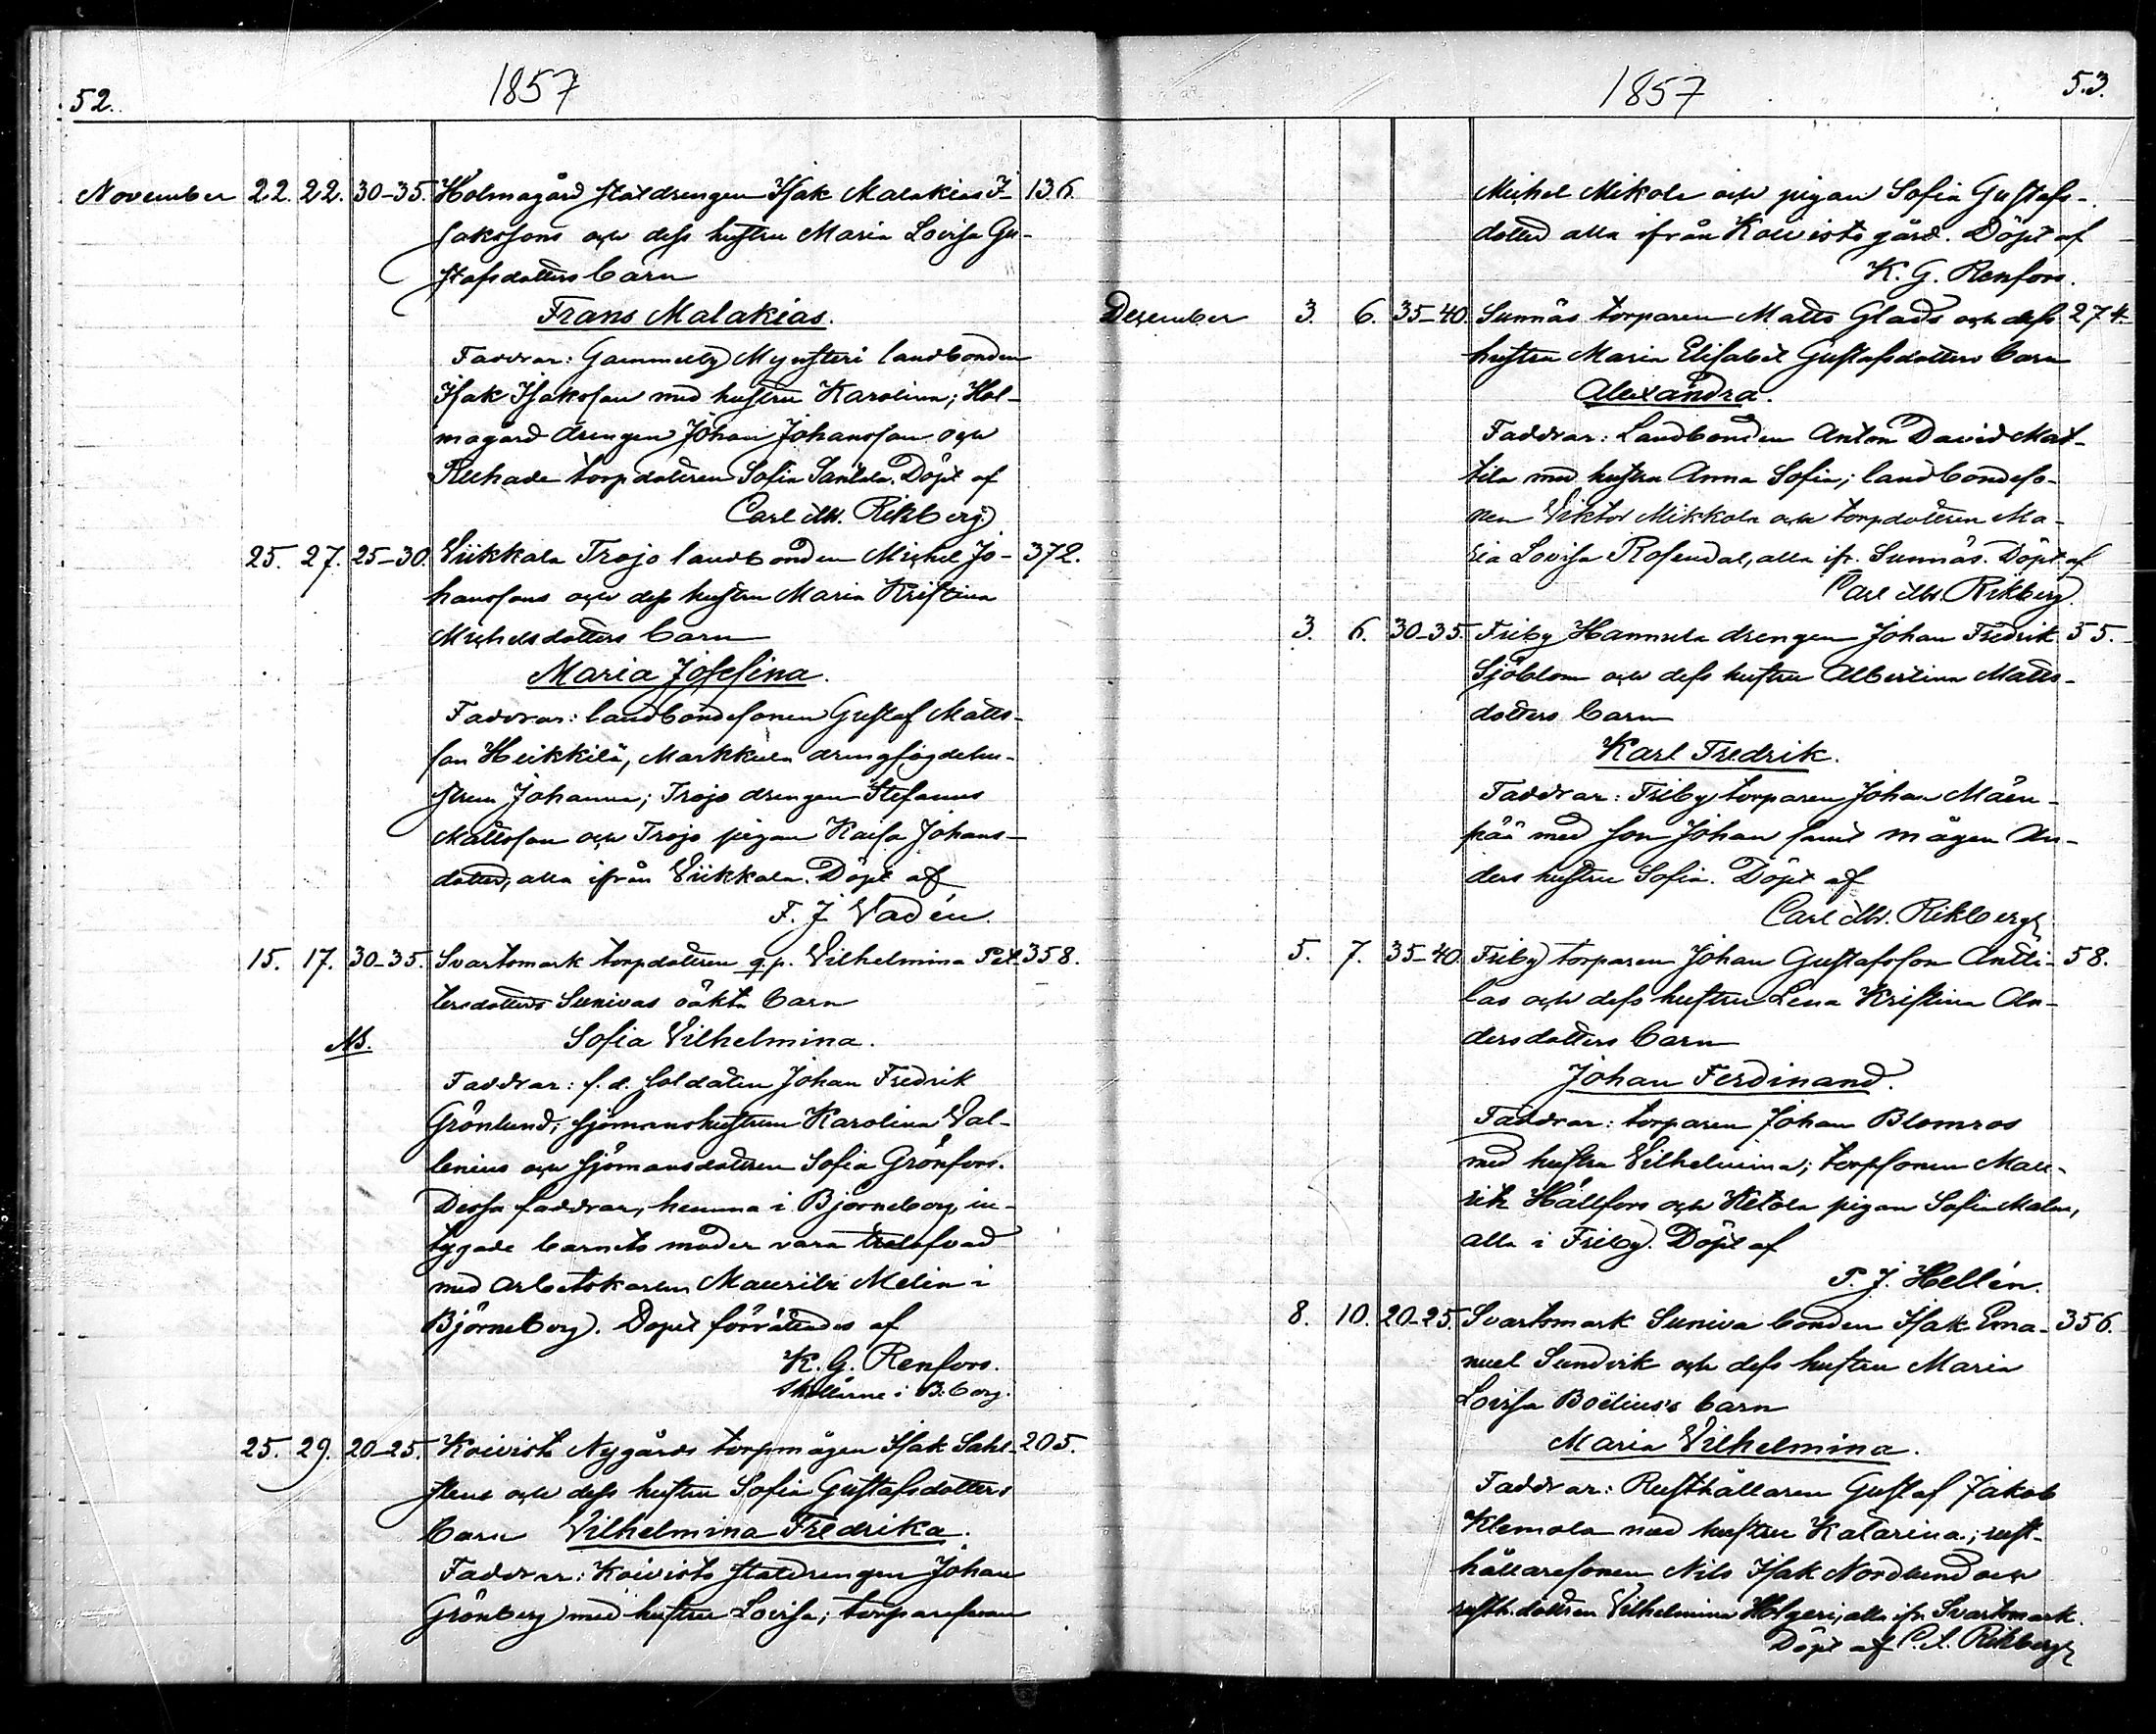 52.
1857
November 22. 22. 30-35. Holmagård statdrengen Isak Malakias I- 136.
saksons och dess hustru Maria Lovisa Gu-
stafsdotters barn
Frans Malakias.
Faddrar: Gammelby Mynsteri landbonden
Isak Isaksson med hustru Karolina; Hol-
magård drengen Johan Johansson och
torpdottren Sofia Santala. Döpt af
Carl M. Rikberg.
25. 27. 25-30. Viikkala Trojo landbonden Michel Jo- 372.
hanssons och dess hustru Maria Kristina
Michelsdotters barn
Maria Josefina.
Faddrar: landbondesonen Gustaf Matts-
son Heikkilä, Markkula drengfogdehu-
strun Johanna; Trojo drengen Stefanus
Mattsson och Trojo pigan Kaisa Johans-
dotter, alla ifrån Viikkala. Döpt af
F. J. Vadén.
15. 17. 30-35. Svartsmark torpdottren q.p. Vilhelmina Pet- 358.
tersdotters Sunivas oäkta barn
NB. Sofia Vilhelmina.
Faddrar: f.d. soldaten Johan Fredrik
Grönlund; sjömanshustrun Karolina Val-
lenius och sjömansdottren Sofia Grönfors.
Dessa faddrar, hemma i Björneborg, in-
tygade barnets moder vara trolofvad
med arbetskarlen Maurits Melin i
Björneborg. Dopet förrättades af
K. G. Renfors.
i B:borg.
25. 29. 20-25. Koivisto Nygårds torpmågen Isak Sahl- 205.
stens och dess hustru Sofia Gustafsdotters
barn Vilhelmina Fredrika.
Faddrar: Koivisto statdrengen Johan
Grönberg med hustru Lovisa; torparesonen
1857
53.
Michel Mikola och pigan Sofia Gustafs-
dotter alla ifrån Koivisto gård. Döpt af
K. G. Renfors.
December 3. 6. 35-40. Sunnäs torparen Matts Glads och dess 274.
hustru Maria Elisabet Gustafsdotters barn
Alexandra.
Faddrar: Landbonden Anton David Mat-
tila med hustru Anna Sofia; landbondeso-
nen Viktor Mikkola och torpdottren Ma-
ria Lovisa Rosendal, alla ifr. Sunnäs. Döpt af
Carl M. Rikberg.
3. 6. 30-35. Friby Hannula drengen Johan Fredrik 55.
Sjöblom och dess hustru Albertina Matts-
dotters barn
Karl Fredrik.
Faddrar: Friby torparen Johan Mäen-
pää med son Johan samt mågen An-
ders hustru Sofia. Döpt af
Carl M. Rikberg
5. 7. 35-40. Friby torparen Johan Gustafsson Antti- 58.
las och dess hustru Lena Kristina An-
dersdotters barn
Johan Ferdinand.
Faddrar: torparen Johan Blomros
med hustru Vilhelmina; torpsonen Mau-
rits Hällfors och Ketola pigan Sofia Malm,
alla i Friby. Döpt af
P. J. Hellén.
8. 10. 20-25. Svartsmark Suniva bonden Isak Ema- 356.
nuel Sundvik och dess hustru Maria
Lovisa Boëlius's barn
Maria Vilhelmina.
Faddrar: Rusthållaren Gustaf Jakob
Klemola med hustru Katarina; rust-
hållaresonen Nils Isak Nordlund och
rusth.dottren Vilhelmina Holgeri, alla ifr. Svartsmark.
Döpt af C. M. Rikberg